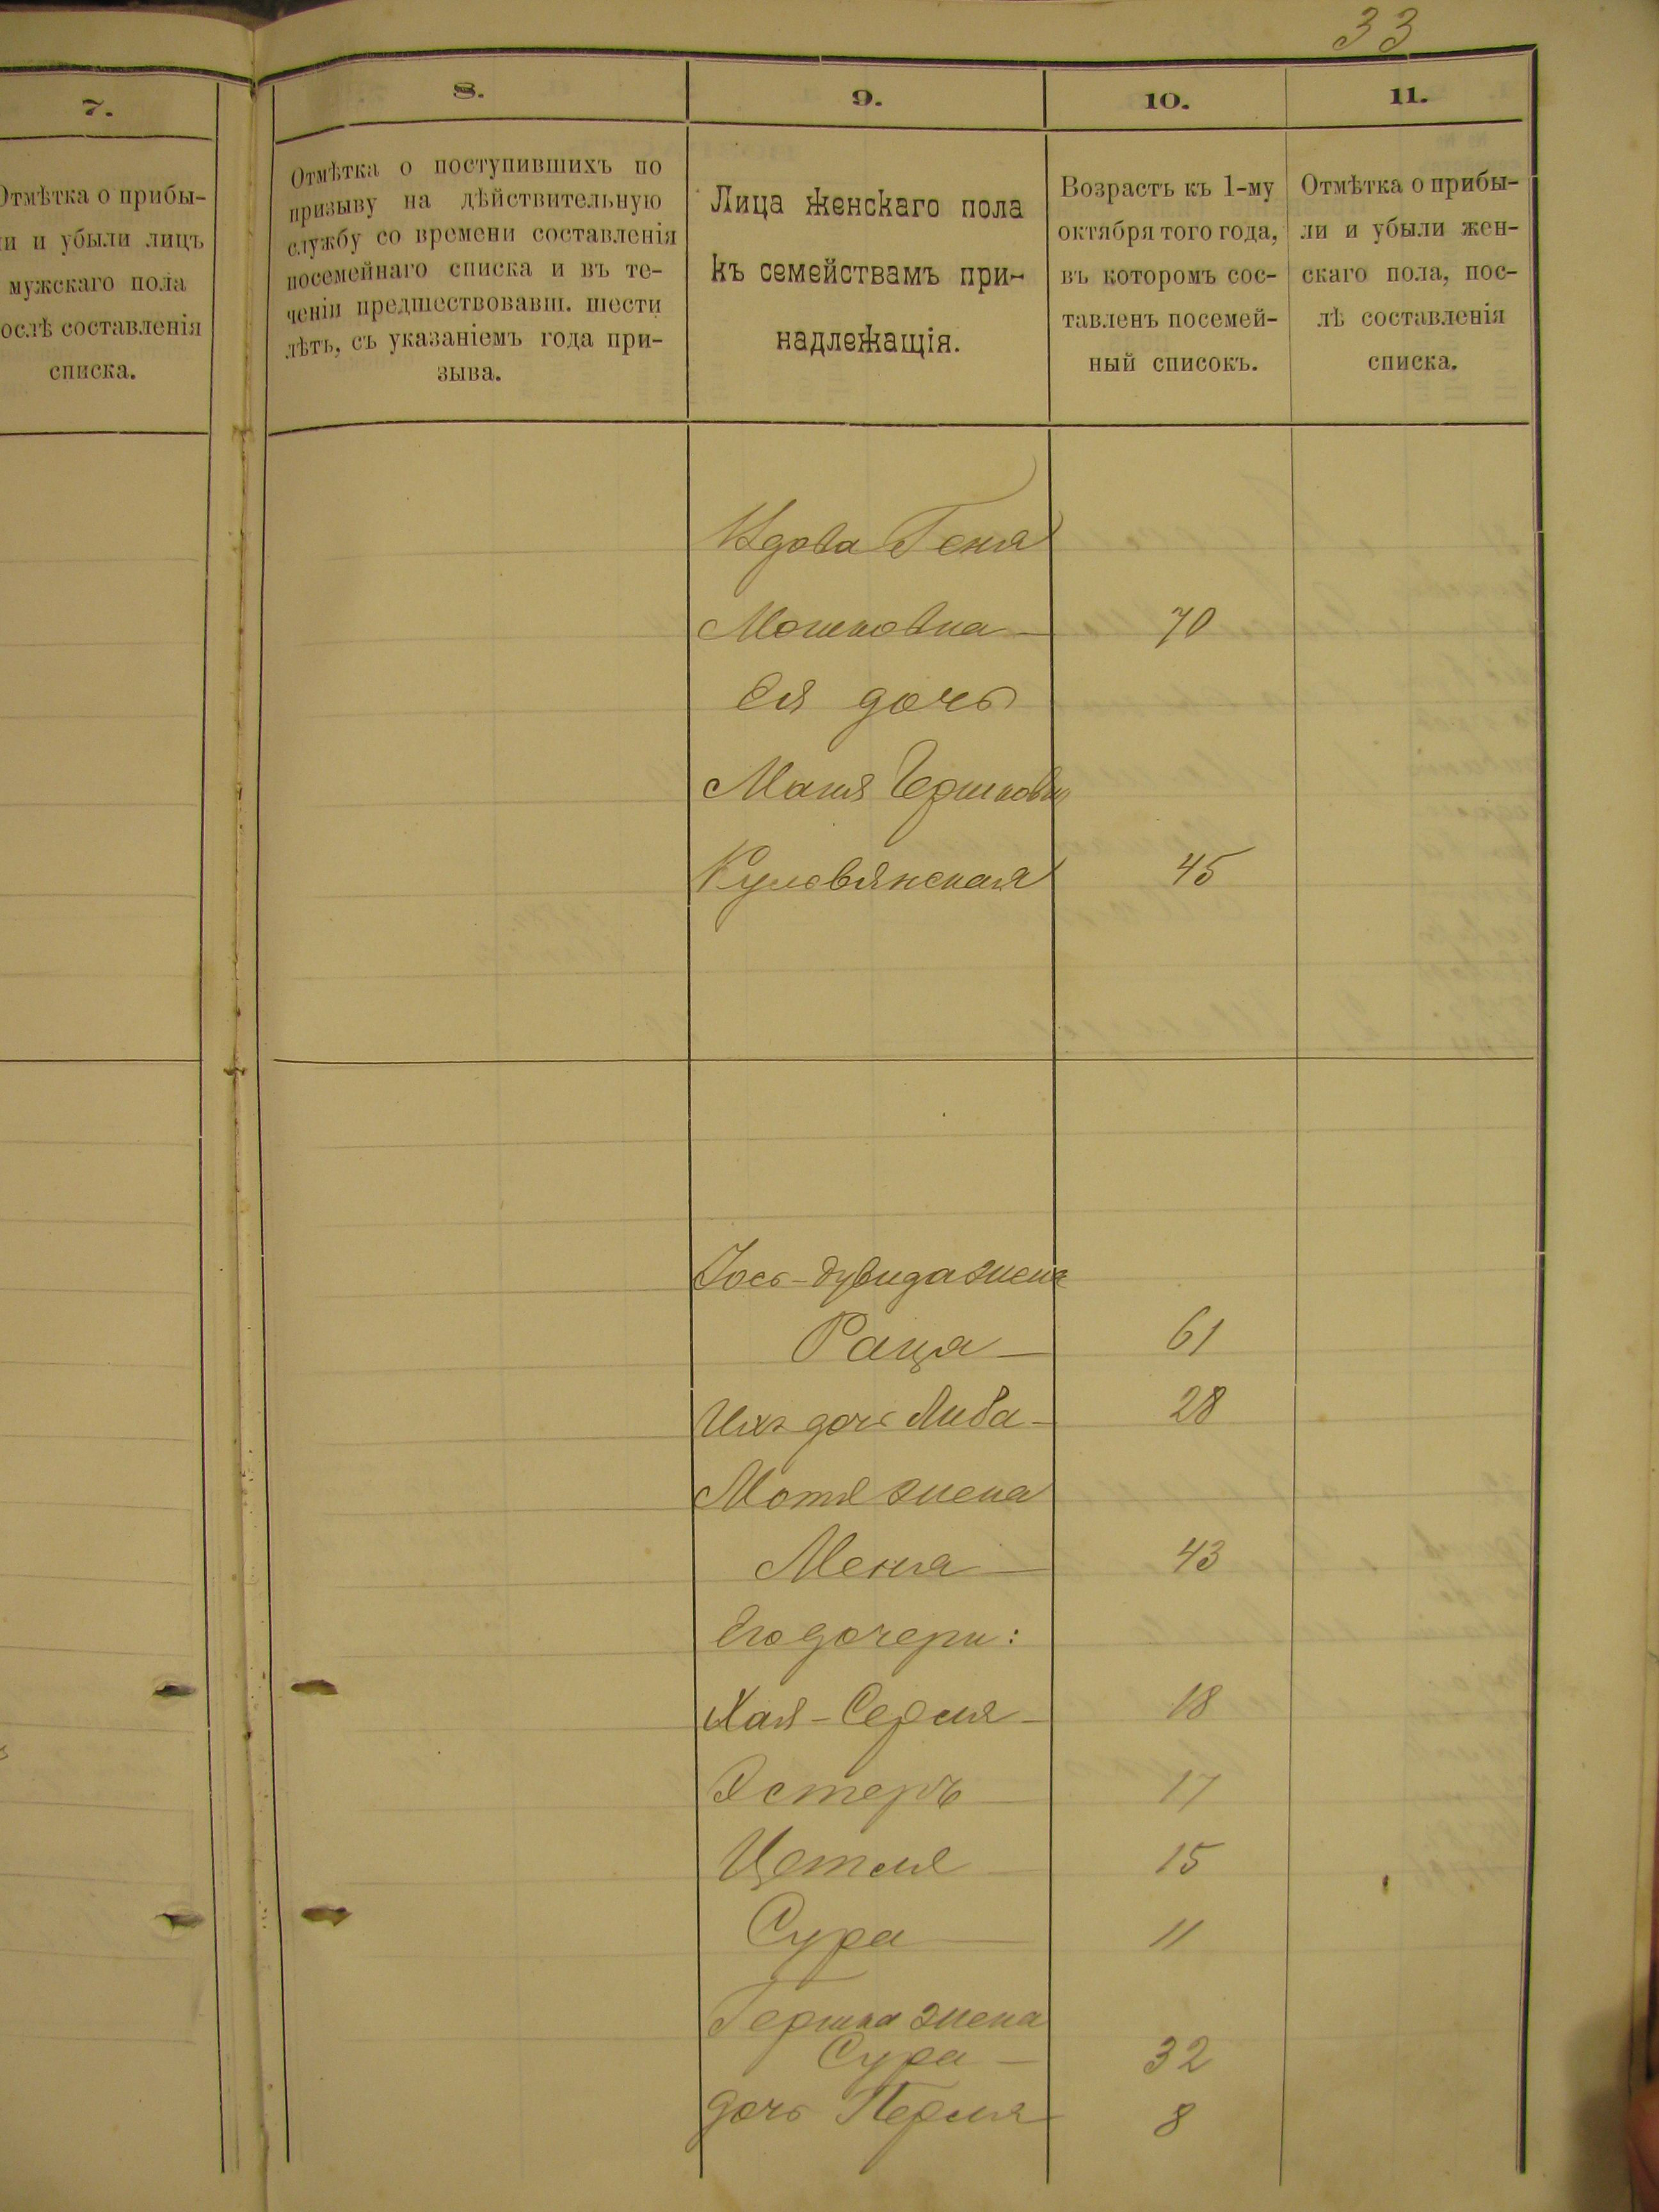 33
7.
Отмѣтка о прибы-
ли и убыли лицъ
мужскаго пола
послѣ составленія
списка.
8.
Отмѣтка о поступившихъ по
призыву на дѣйствительную
службу со времени составленія
посемейнаго списка и въ те-
ченіи предшествовавш. шести
лѣтъ, съ указаніемъ года при-
зыва.
9.
Лица женскаго пола
къ семействамъ при-
надлежащія.
10.
Возрастъ къ 1-му
октября того года,
въ которомъ сос-
тавленъ посемей-
ный списокъ.
11.
Отмѣтка о прибы-
ли и убыли жен-
скаго пола, пос-
лѣ составленія
списка.
Вдова Геня
Мошковна — 70
Ея дочь
Маня Гершковна
45
Іось-Дувида жена
Раця — 61
Ихъ дочь Либа — 28
Мотя жена
Меня — 43
Его дочери:
Хая-Серля — 18
Эстеръ — 17
Цетля — 15
Сура — 11
Гершка жена
Сура — 32
дочь Перля 8